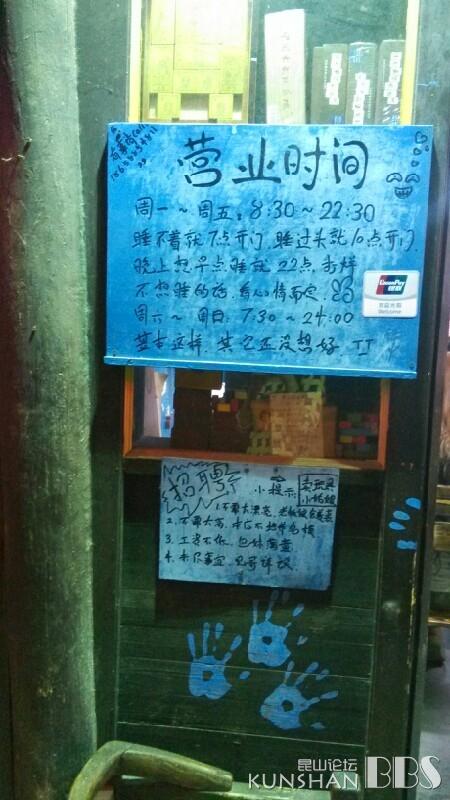 营业时间
周一～周五：8:30～22:30
睡不着就7点开门，睡过头就10点开门.
晚上想早点睡就22点打烊
不想睡的话，看心情而定.
周六～周日：7:30～24:00
基本这样，其它还没想好.TT
UnionPay
银联
欢迎光临
Welcome
招聘
小提示
卖玩具
小姑娘
1.不要太漂亮，老板娘会羡慕
3.工资不低，包休
4.未尽事宜，见哥详议
昆山论坛
KUNSHAN BBS